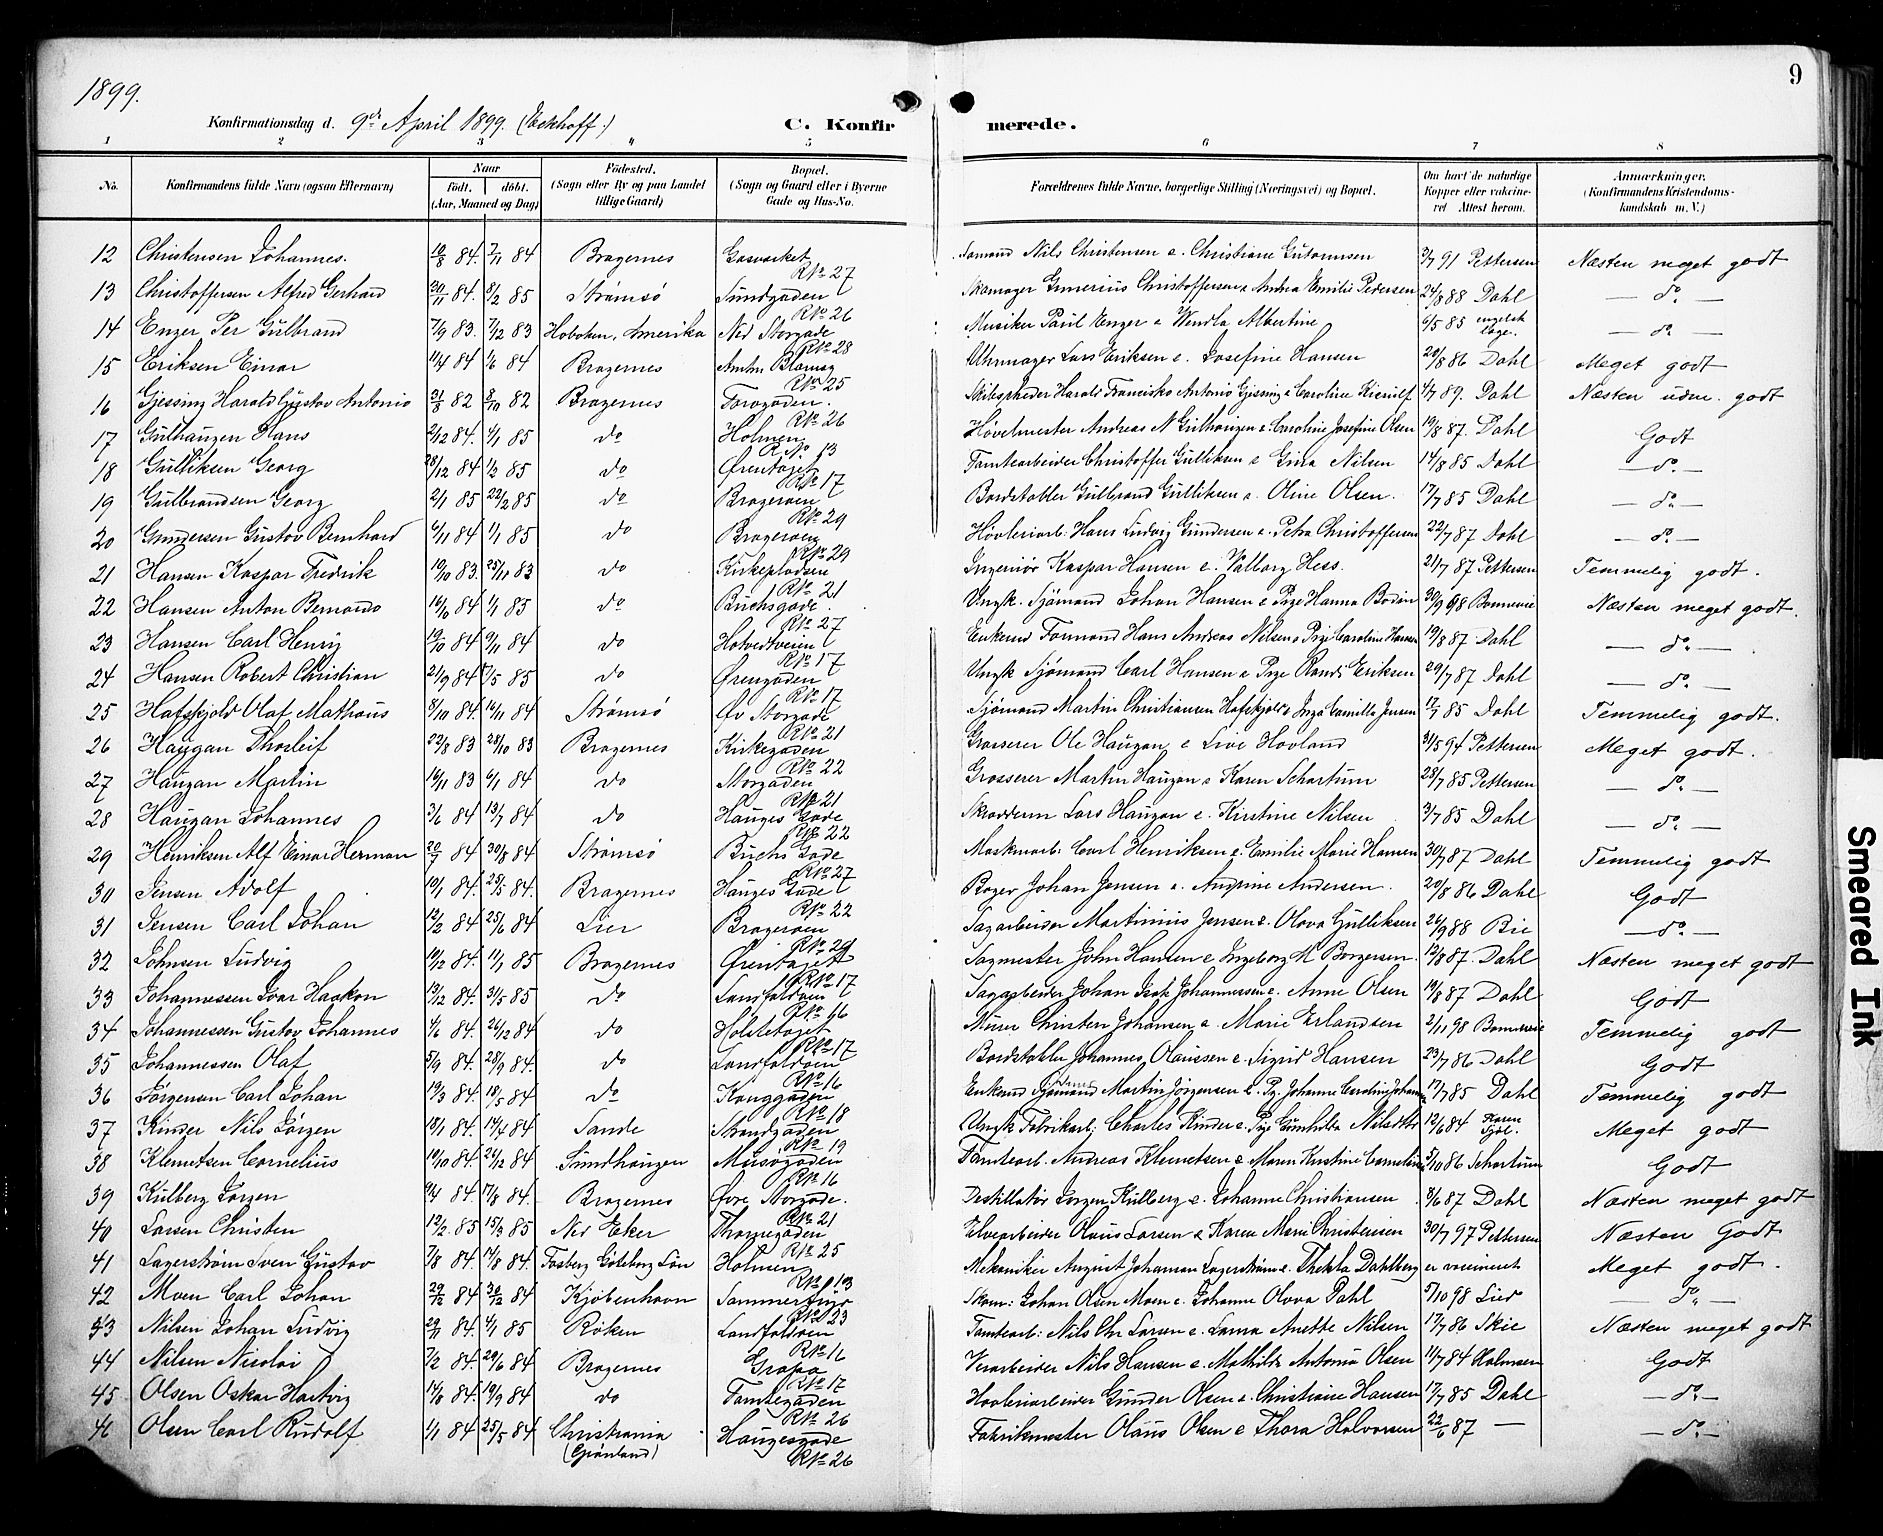 9
1899.
Konfirmationsdag d. 9de April 1899. (Eckhoff.)
C. Konfirmerede.
1 2 3 4 5 6 7 8
No. Konfirmandens fulde Navn (ogsaa Efternavn) Naar født. døbt. (Aar, Maaned og Dag) Fødested. (Sogn eller By og paa Landet tillige Gaard) Bopæl. (Sogn og Gaard eller i Byerne Gade og Hus-No. Forældrenes fulde Navne, borgerlige Stilling (Næringsvei) og Bopæl. Om havt de naturlige Kopper eller vaccineret Attest herom. Anmærkninger. (Konfirmandens Kristendomskundskab m. V.)
12 Christensen Johannes. 10/8 84. 7/11 84 Bragernes Gasværket R№ 27 Nils Christensen e. Christiane 3/7 91 Pettersen Næsten meget godt
13 Christoffersen Alfred Gerhard 20/11 84. 8/2 85 Strømsø Tundgaden R№ 26 Skomager Christoffersen e Andrea Emilie Pedersen 24/8 88 Dahl — do —
14 Enger Per Gulbrand 7/9 83. 7/12 83 Hoboken, Amerika Ned Storgade R№ 28 Musiker Paul Enger e Wendla Albertine 6/5 85 engelsk læge. — do —
15 Eriksen Einar 11/4 84 1/6 84 Bragernes R№ 25 Uhrmager Lars Eriksen e. Josefine Hansen 20/8 86 Dahl Meget godt
16 Gjessing Harald Gustav Antonio 31/8 82 8/10 82 Bragernes Torvgaden. R№ 26 Skibsrheder Harald Francisko Antonio Gjessing e Caroline 4/7 89. Dahl Næsten udm. godt
17 Gulhaugen Hans 2/12 84. 4/1 85 do Holmen R№ 13 Høvelmester Andreas N Gulhaugen e Caroline Josefine Olsen 19/8 87. Dahl Godt
18 Gulliksen Georg 28/12 84 1/2 85 do Ørentaget R№ 17 Tomtearbeider Christoffer Gulliksen e Gina Nilsen 14/8 85 Dahl — do —
19 Gulbrandsen Georg 2/1 85 22/2 85 do Bragerøen R№ 29 Bordstabler Gulbrand Gulliksen e. Oline Olsen. 17/7 85 Dahl — do —
20 Gundersen Gustav Bernhard 6/11 84 1/1 85 do Bragerøen R№ 29 Høvleriarb: Hans Ludvig Gundersen e. Petra Christoffersen 22/7 87 Dahl — do —
21 Hansen Kaspar Fredrik 19/10 83. 25/11 83 do Kirkepladsen R№ 21 Ingeniør Kaspar Hansen e. Valborg Hess. 21/7 87 Pettersen Temmelig godt.
22 Hansen Anton Bernardo 84 1/1 85 do Buchsgade. R№ 27 Ungk. Sjømand Johan Hansen e Pige Hanna Bodin 30/9 98 Bonnevie Næsten meget godt.
23 Hansen Carl Henry 19/10 84 9/11 84 do Hotvedtveien R№ 17 Enkemd Formand Hans Andreas Nilsen e Pige Caroline Hansen 19/8 87 Dahl — do —
24 Hansen Robert Christian 21/9 84 85 do Ørengaden R№ 17 Ungk Sjømand Carl Hansen e Pige Randi Eriksen 29/7 87 Dahl — do —
25 Hafskjold Olaf Mathæus 8/10 84. 16/11 84 Strømsø Øv Storgade R№ 21 Sjømand Martin Christiansen Hafskjold e Inga Camilla Jensen 12/7 85 Dahl Temmelig godt.
26 Haugan Thorleif 22/8 83 28/10 83 Bragernes Kirkegaden R№ 22 Grosserer Ole Haugan e Live Hovland 31/5 94 Pettersen Meget godt.
27 Haugan Martin 16/11 83 6/1 84 do Storgaden R№ 21 Grosserer Martin Haugan e Karen Schartum 28/7 85 Pettersen — do —
28 Haugan Johannes 3/6 84 13/7 84 do Hauges Gade R№ 22 Skrædderm Lars Haugan e. Kirstine Nilsen 3/7 85 Dahl — do —
29 Henriksen Alf Einar Herman 20/7 84 30/8 84 Strømsø Buchs Gade R№ 27 Maskinarb: Carl Henriksen e. Emilie Marie Hansen 30/7 87 Dahl Temmelig godt
30 Jensen Adolf 10/1 84. 25/5 84. Bragernes Hauges Gade R№ 22 Bager Johan Jensen e. Andersen. 20/8 86 Dahl Godt
31 Jensen Carl Johan 12/2 84 25/6 84 Lier Bragerøen R№ 29 Sagarbeider Martinius Jensen e. Olava Gulliksen 26/9 88 Bie — do —
32 Johnsen Ludvig 19/12 84. 11/1 85 Bragernes Ørentaget R№ 17 Sagmester John Hansen e Ingeborg M Borgersen. 13/8 87. Dahl Næsten meget godt
33 Johannessen Ivar Haakon 13/12 84. 31/5 85 do Landfaldøen R№ 16 Sagarbeider Johan Isak Johannessen e. Anne Olsen 19/8 87 Dahl Godt
34 Johannessen Gustav Johannes 4/6 84 26/12 84 do R№ 17 Murer Christen Johansen e. Marie Erlandsen 2/11 98 Bonnevie Temmelig godt
35 Johannessen Olaf 5/9 84. 28/9 84. do Landfaldøen R№ 16 Bordstabler Johannes Olaussen e. Sigrid Hansen 23/7 86 Dahl Godt
36 Jørgensen Carl Johan 19/3 84 18/5 84 do Konggaden R№ 18 Enkemd Sjømand Martin Jørgensen e. Pg. Johanne Caroline 17/7 85 Dahl Temmelig godt
37 Kinder Nils Jørgen 18/1 84. 14/4 84 Sande Strandgaden R№ 19 Ungk Fabrikarb; Charles Kinder e. Pige Gunhilda Nilsdtr 12/6 84 Meget godt
38 Klemetsen Cornelius 19/10 84. 26/12 84 Sundhaugen Musegaden R№ 16 Tomtearb. Andreas Klemetsen e Maren Kristine 5/10 86 Schartum Godt
39 Kulberg Jørgen 9/4 84. 17/8 84. Bragernes Øvre Storgade. R№ 21 Destillatør Jørgen Kulberg e. Johanne Christiansen 8/6 87 Dahl Næsten meget godt
40 Larsen Christen 12/2 85 15/3 85 Ned Eker Thornegaden R№ 25 Elvearbeider Olaus Larsen e Karen Marie Christensen 30/7 97 Pettersen Næsten Godt
41 Lagerstrøm Sven Gustav 7/8 84. 14/8 84. Göteborg Län Holmen R№ 13 Mekaniker August Johansen Lagerstrøm e. Thekla Dahlberg er vaccineret Meget godt.
42 Moen Carl Johan 29/12 84 30/12 84 Kjøbenhavn R№ 23 Skom: Johan Olsen Moen e. Johanne Olava Dahl 5/10 98 Lier — do —
43 Nilsen Johan Ludvig 29/11 84. 4/1 85 Røken Landfaldøen R№ 16 Tomtearb: Nils Chr Larsen e. Laura Anette Nilsen 17/7 86 Skie Næsten meget godt
44 Nilsen Nicolai 7/2 84 29/6 84 Bragernes R№ 17 Nils Hansen e. Mathilde Antonia Olsen 11/7 84 Holmsen Godt
45 Olsen Oskar Hartvig 84. 19/9 84 do Tomtegaden R№ 26 Høvleriarbeider Gunder Olsen e. Christiane Hansen 17/7 85 Dahl — do —
46 Olsen Carl Rudolf 1/1 84 25/5 84 Christiania (Grønland) Haugesgade R№ 26 Fabrikmester Olaus Olsen e Thora Halvorsen 22/6 87 — — do —
Smeared Ink